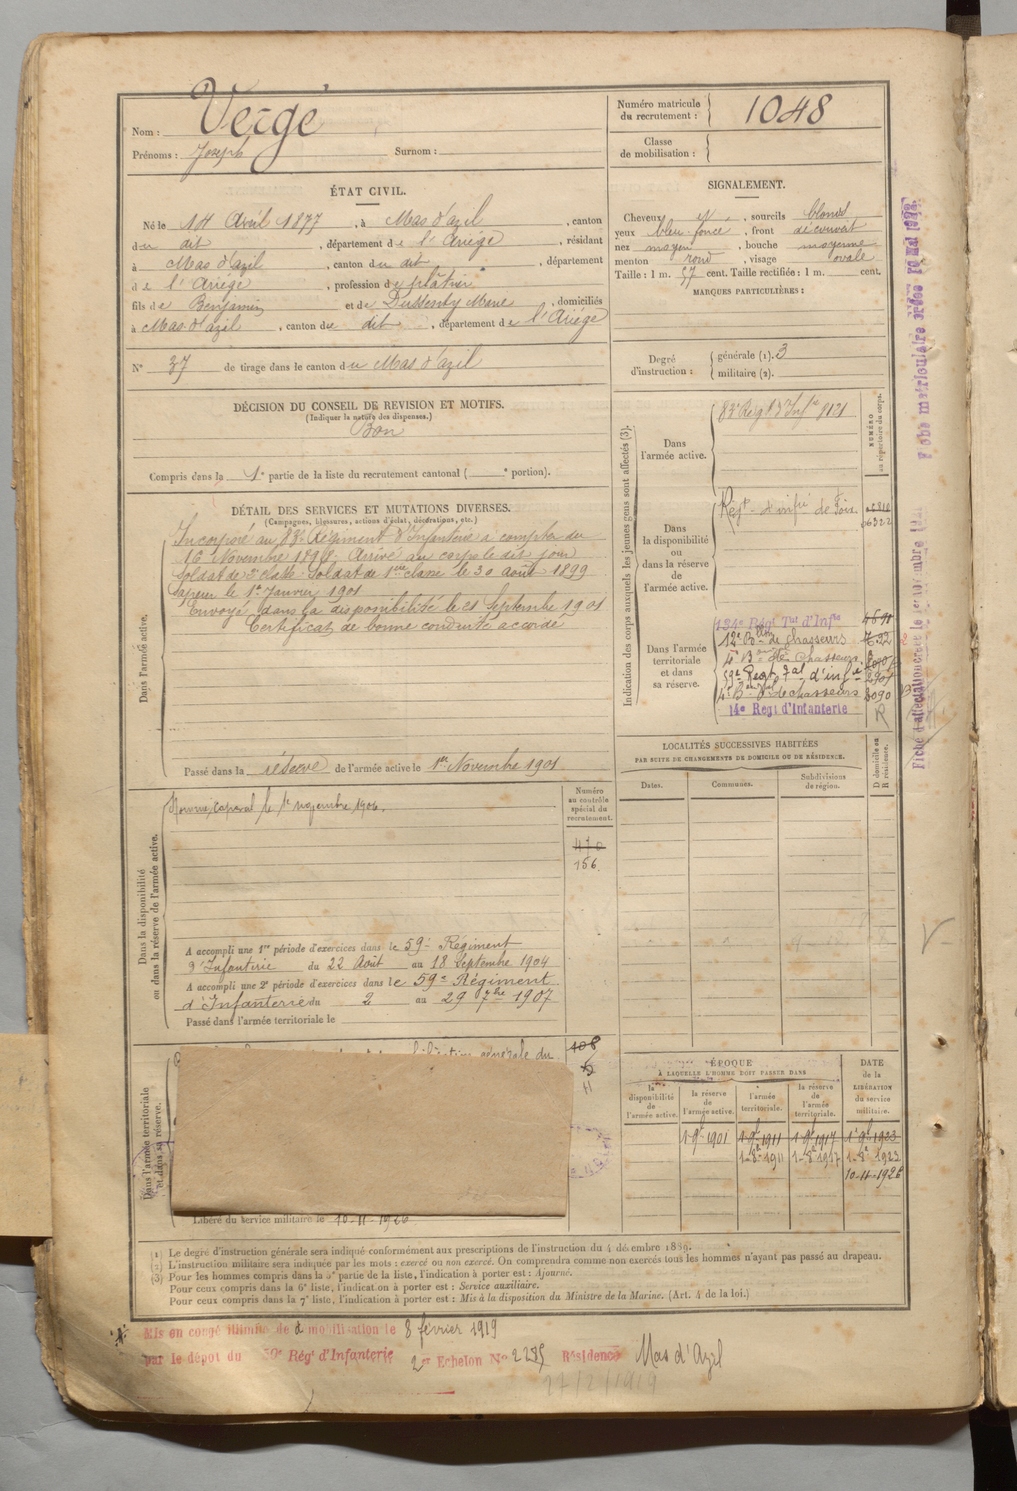 Nom : Vergé
Prénoms : Joseph Surnom :
Numéro matricule du recrutement : 1048
Classe de mobilisation :
ÉTAT CIVIL.
Né le 14 Avril 1877, à Mas d'azil, canton
du dit, département de l'Ariège, résidant
à Mas d'azil, canton du dit, département
de l'Ariège, profession de plâtrier
fils de Benjamin et de Marie, domiciliés
à Mas-d'azil, canton de dit, département de l'Ariège
N° 37 de tirage dans le canton du Mas d'azil
SIGNALEMENT.
Cheveux et, sourcils blonds
yeux bleu foncé, front découvert
nez moyen, bouche moyenne
menton rond, visage ovale
Taille : 1 m. 57 cent. Taille rectifiée : 1 m. cent.
MARQUES PARTICULIÈRES :
Degré d'instruction : générale (1). 3
militaire (2).
DÉCISION DU CONSEIL DE REVISION ET MOTIFS.
(Indiquer la nature des dispenses.)
Bon
Compris dans la 1e partie de la liste du recrutement cantonal ( e portion).
DÉTAIL DES SERVICES ET MUTATIONS DIVERSES.
(Campagnes, blessures, actions d'éclat, décorations, etc.)
Dans l'armée active.
Incorporé au 83e Régiment d'Infanterie à compter du
16 Novembre 1898. Arrivé au corps le dit jour
Soldat de 2e classe Soldat de 1ère classe le 30 août 1899
Sapeur le 1er Janvier 1901
Envoyé dans la disponibilité le 21 Septembre 1901
Certificat de bonne conduite accordé
Passé dans la réserve de l'armée active le 1er Novembre 1901
Indication des corps auxquels les jeunes gens sont affectés (3).
NUMÉRO au répertoire du corps.
Dans l'armée active.
83e Régt d'Infie 8121
Dans la disponibilité ou dans la réserve de l'armée active.
Régt d'infie de Foix
06322
Dans l'armée territoriale et dans sa réserve.
134e Régt Tal d'Infie
12e Bon de chasseurs
4e Bon de chasseurs
59e Regt Tal d'infie
4e Bon de chasseurs 8090
14e Régt d'Infanterie R
LOCALITÉS SUCCESSIVES HABITÉES
PAR SUITE DE CHANGEMENTS DE DOMICILE OU DE RÉSIDENCE.
Dates. Communes. Subdivisions de région. D domicile ou R résidence.
Dans la disponibilité ou dans la réserve de l'armée active.
Numéro au contrôle spécial du recrutement.
Nommé Caporal le 1er novembre 1906.
470
156
A accompli une 1re période d'exercices dans le 59e Régiment
d'Infanterie du 22 Août au 18 Septembre 1904
A accompli une 2e période d'exercices dans le 59e Régiment
d'Infanterie du 2 au 29 7bre 1907
Passé dans l'armée territoriale le
Dans l'armée territoriale et dans sa réserve.
générale du
408
Libéré du service militaire le 10-11-1926
ÉPOQUE
À LAQUELLE L'HOMME DOIT PASSER DANS
la disponibilité de l'armée active.
la réserve de l'armée active.
l'armée territoriale.
la réserve de l'armée territoriale.
DATE de la LIBÉRATION du service militaire.
1-9e 1901 1-9e 1911 1-9e 1917 1e 9e 1923
1-8e 1911 1-8e 1917 1-8e 1923
10-11-1926
(1) Le degré d'instruction générale sera indiqué conformément aux prescriptions de l'instruction du 4 décembre 1889.
(2) L'instruction militaire sera indiquée par les mots : exercé ou non exercé. On comprendra comme non exercés tous les hommes n'ayant pas passé au drapeau.
(3) Pour les hommes compris dans la 5e partie de la liste, l'indication à porter est : Ajourné.
Pour ceux compris dans la 6e liste, l'indication à porter est : Service auxiliaire.
Pour ceux compris dans la 7e liste, l'indication à porter est : Mis à la disposition du Ministre de la Marine. (Art. 4 de la loi.)
Mis en congé illimité de démobilisation le 8 février 1919
par le dépôt du Régt d'Infanterie 2e Echelon No Résidence Mas d'Azil
27/2/1919